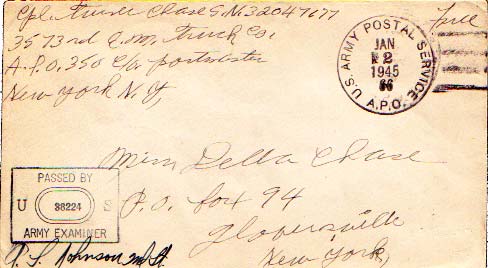 Cpl. Turner Chase S.N. 32047177
Free
3573rd Q.M. Truck Co.
A.P.O. 350 C/o postmaster
New York N.Y.
U.S. ARMY POSTAL SERVICE
JAN
2
1945
A.P.O.
Miss Della Chase
P.O. box 94
Gloversville
New York
PASSED BY
U 38224 S
ARMY EXAMINER
Johnson